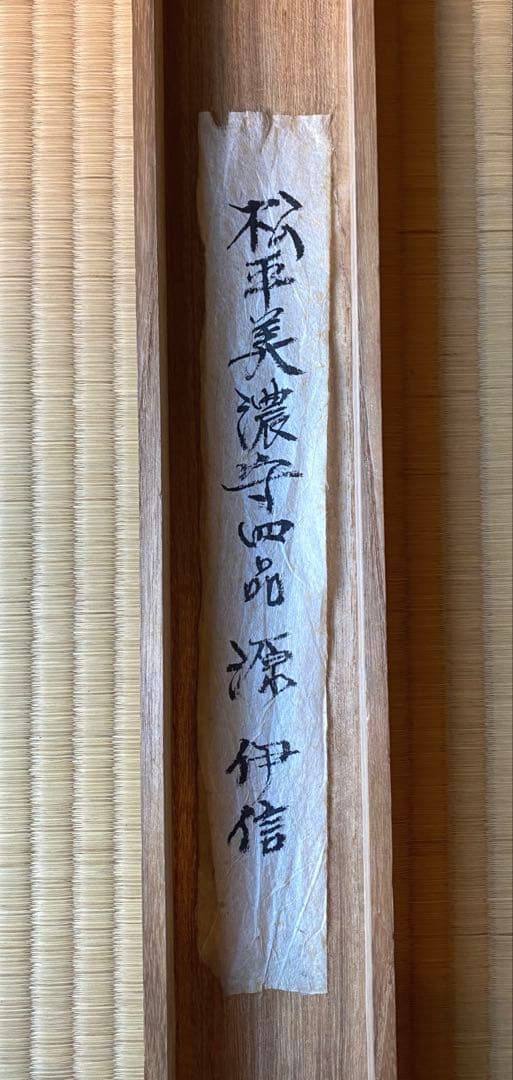 松平美濃守四品 源 伊信